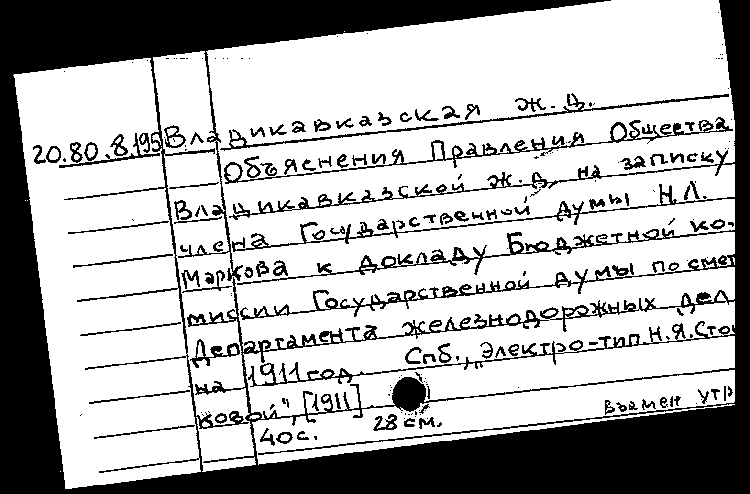 Владикавказская ж.д.
20.80.8.195
Объяснения Правления Общества
Владикавказской ж.д. на записку
члена Государственной Думы Н.Л.
Маркова к докладу Бюджетной ко-
миссии Государственной Думы по смет
Департамента железнодорожных дел
на 1911 год. Спб., "Электро-тип. Н.Я.Стой
ковой", [1911]
40 с. 28 см.
Взамен утр